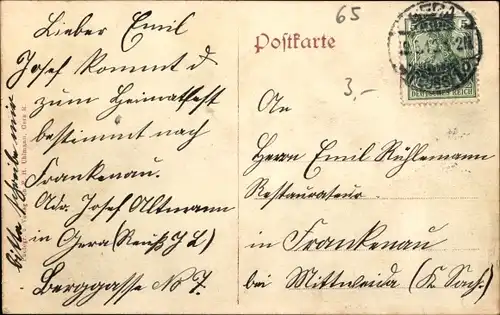 65
Postkarte
3,-
Lieber Emil
Josef kommt d
zum Heimatfest
bestimmt nach
Frankenau.
Adr. Josef Altmann
in Gera (Reuß J L)
Berggasse No 7.
Bitte schreibe mir
An
Herrn Emil Rühlemann
Restaurateur.
in Frankenau
bei Mittweida (K. Sach.)
DEUTSCHES REICH